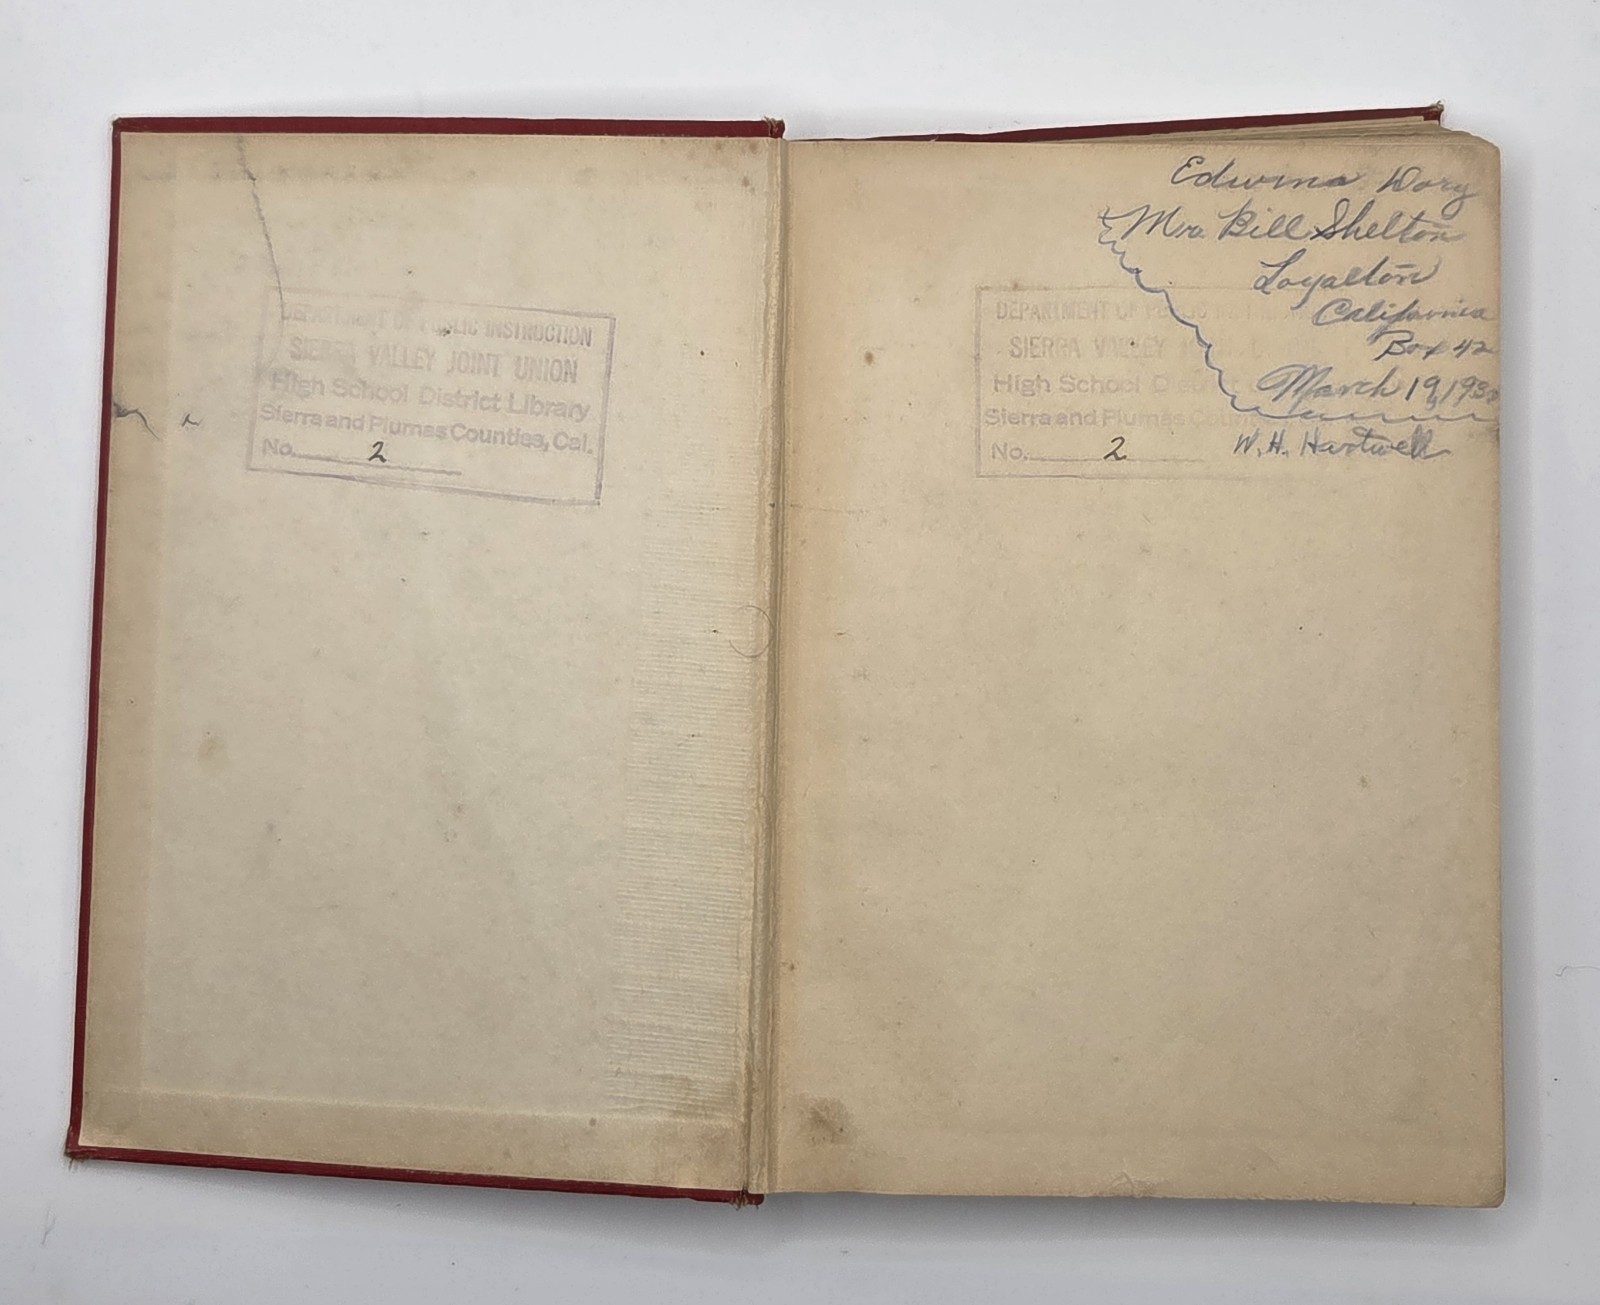 DEPARTMENT OF PUBLIC INSTRUCTION
SIERRA VALLEY JOINT UNION
High School District Library
Sierra and Plumas Counties, Cal.
No. 2
Edwina Dory
Mrs. Bill Shelton
Loyalton
California
Box 42
March 19, 193
DEPARTMENT OF PUBLIC
SIERRA VALLEY
High School District
Sierra and Plumas Coun
No. 2
W. H. Hartwell